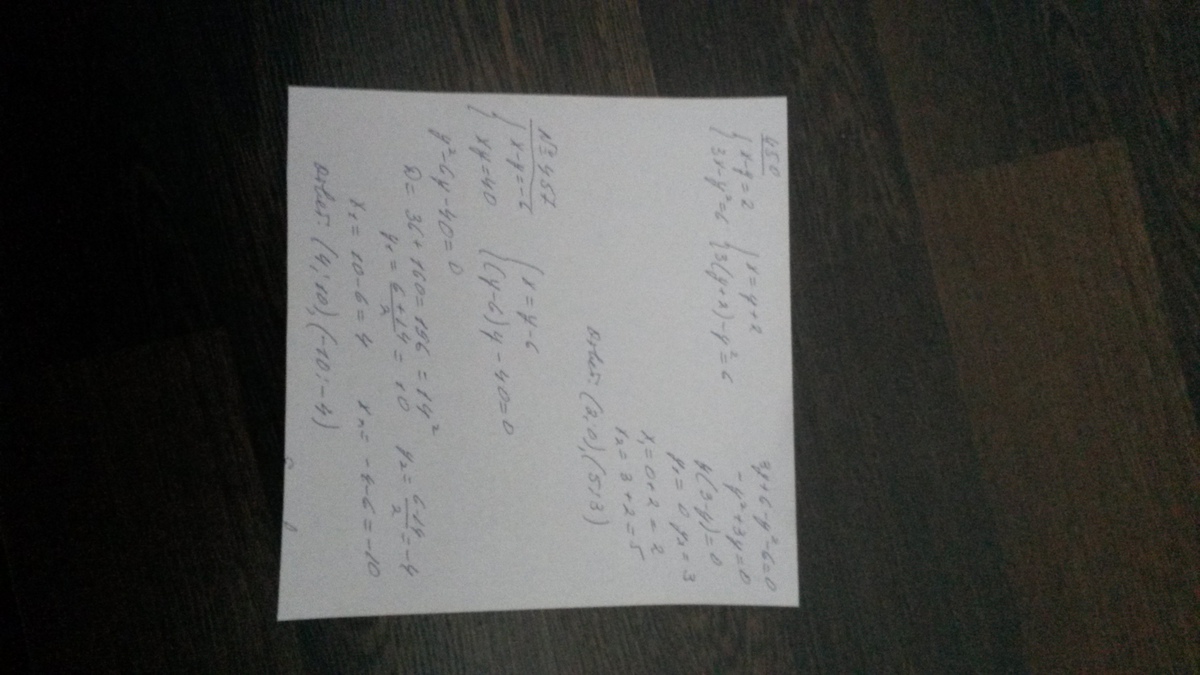 450
{ x-y=2 { x=y+2 3y+6-y²-6=0
{ 3x-y²=6 { 3(y+2)-y²=6 -y²+3y=0
y(3-y)=0
y₁=0 y₂=3
x₁=0+2=2
x₂=3+2=5
Ответ: (2;0),(5;3)
№ 457
{ x-y=-6 { x=y-6
{ xy=40 { (y-6)y-40=0
y²-6y-40=0
D=36+160=196=14²
y₁=6+14/2=10 y₂=6-14/2=-4
x₁=10-6=4 x₂=-4-6=-10
Ответ: (4;10),(-10;-4)